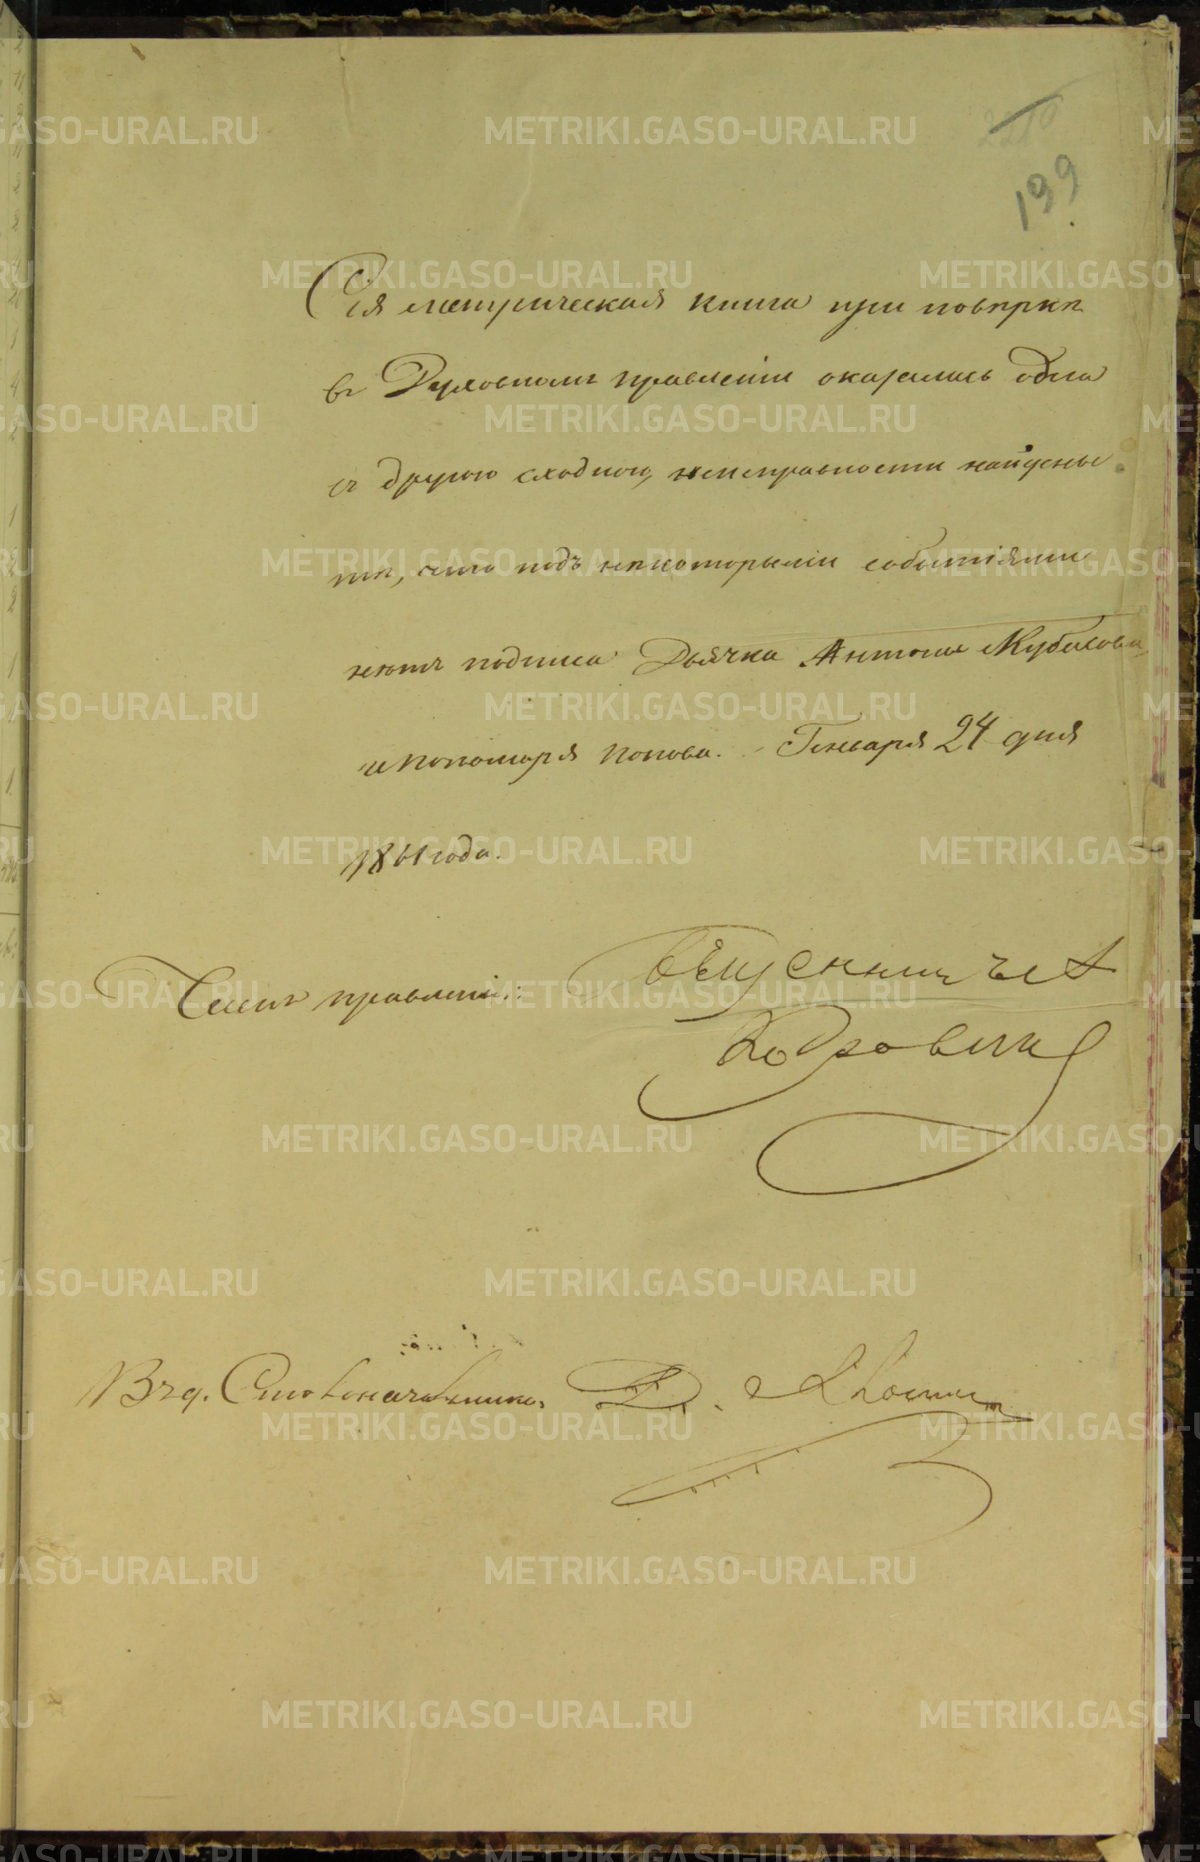 199
Сія метрическая книга при повѣркѣ
въ Духовномъ правленіи оказалась одна
съ другою сходною, неисправности найдены
тѣ, что подъ нѣкоторыми событіями
нѣтъ подписа Дьячка Антона Кубасова
и пономаря Попова. Генваря 24 дня
1861 года.
Членъ правленія:
Столоначальника
METRIKI.GASO-URAL.RU